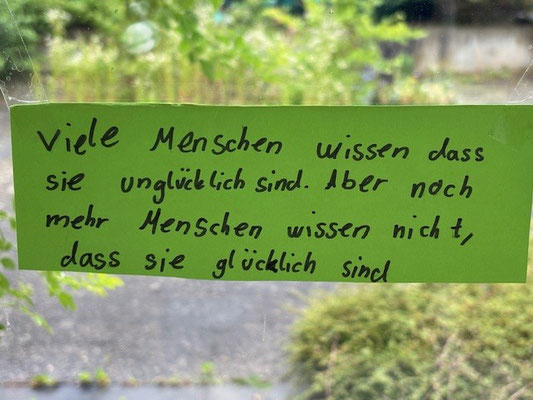 Viele Menschen wissen dass
sie unglücklich sind. Aber noch
mehr Menschen wissen nicht,
dass sie glücklich sind